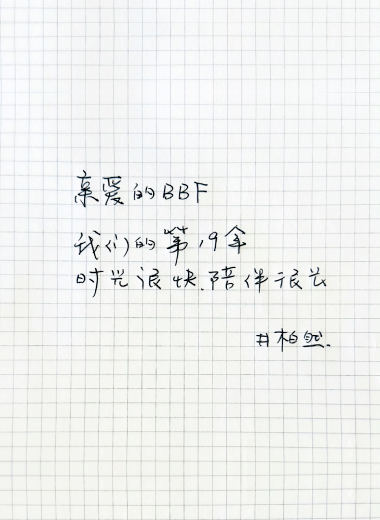 亲爱的BBF
我们的第19年
时光很快.陪伴很长
#柏然.